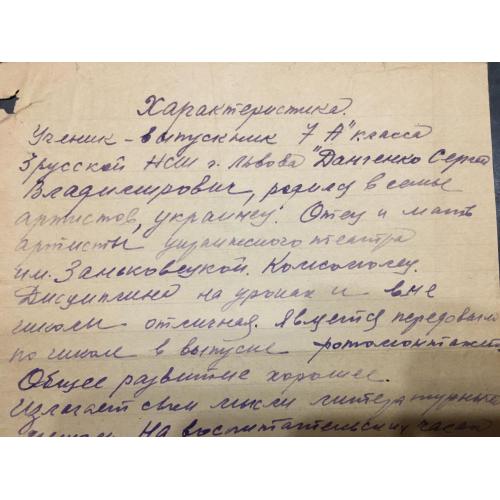 Характеристика.
Ученик – выпускник 7 "А" класса
3 русской НСШ г. Львова "Данченко Сергей
Владимирович, родился в семье
артистов, украинец. Отец и мать
артисты украинского театра
им. Заньковецкой. Комсомолец.
Дисциплина на уроках и вне
школы отличная. Является передовым
по школе в выпуске фотомонтажей
Общее развитие хорошее.
Излагает свои мысли литературным
языком. На воспитательских часах